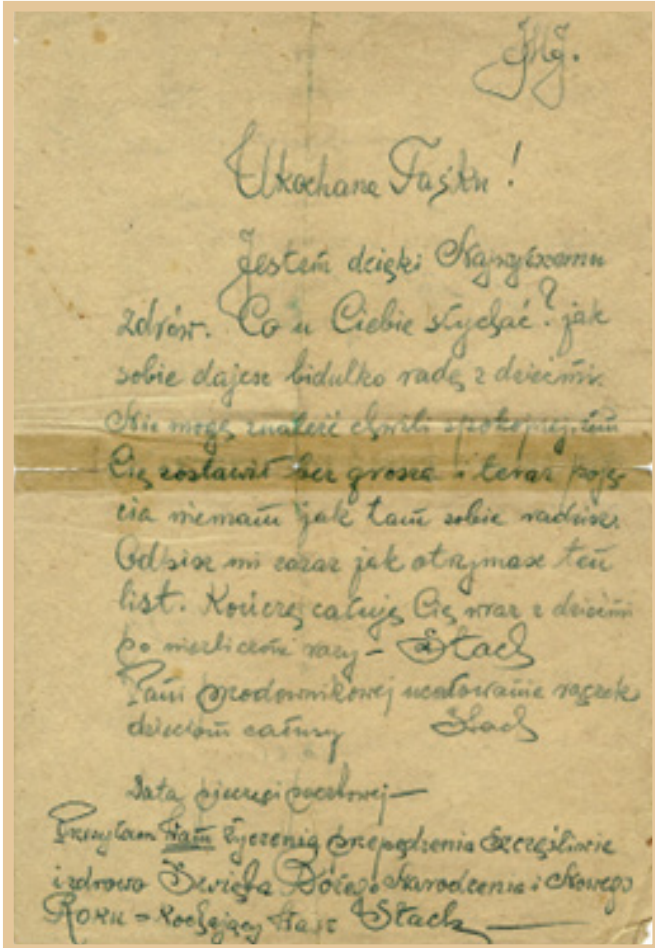 JMJ.
Ukochane Taśku!
Jestem dzięki Najwyższemu
zdrów. Co u Ciebie słychać? jak
sobie dajesz bidulko radę z dziećmi.
Nie mogę znaleść chwili spokojnej, żem
Cię zostawił bez grosza i teraz poję
cia niemam jak tam sobie radzisz.
Odpisz mi zaraz jak otrzymasz ten
list. Kończę całuję Cię wraz z dziećmi
po niezliczone razy – Stach
Pani przodownikowej ucałowanie rączek
dzieciom całusy Stach
Data pieczęci pocztowej —
Przesyłam Wam życzenia przepędzenia szczęśliwie
i zdrowo Święta Bożego Narodzenia i Nowego
Roku – kochający Was Stach —